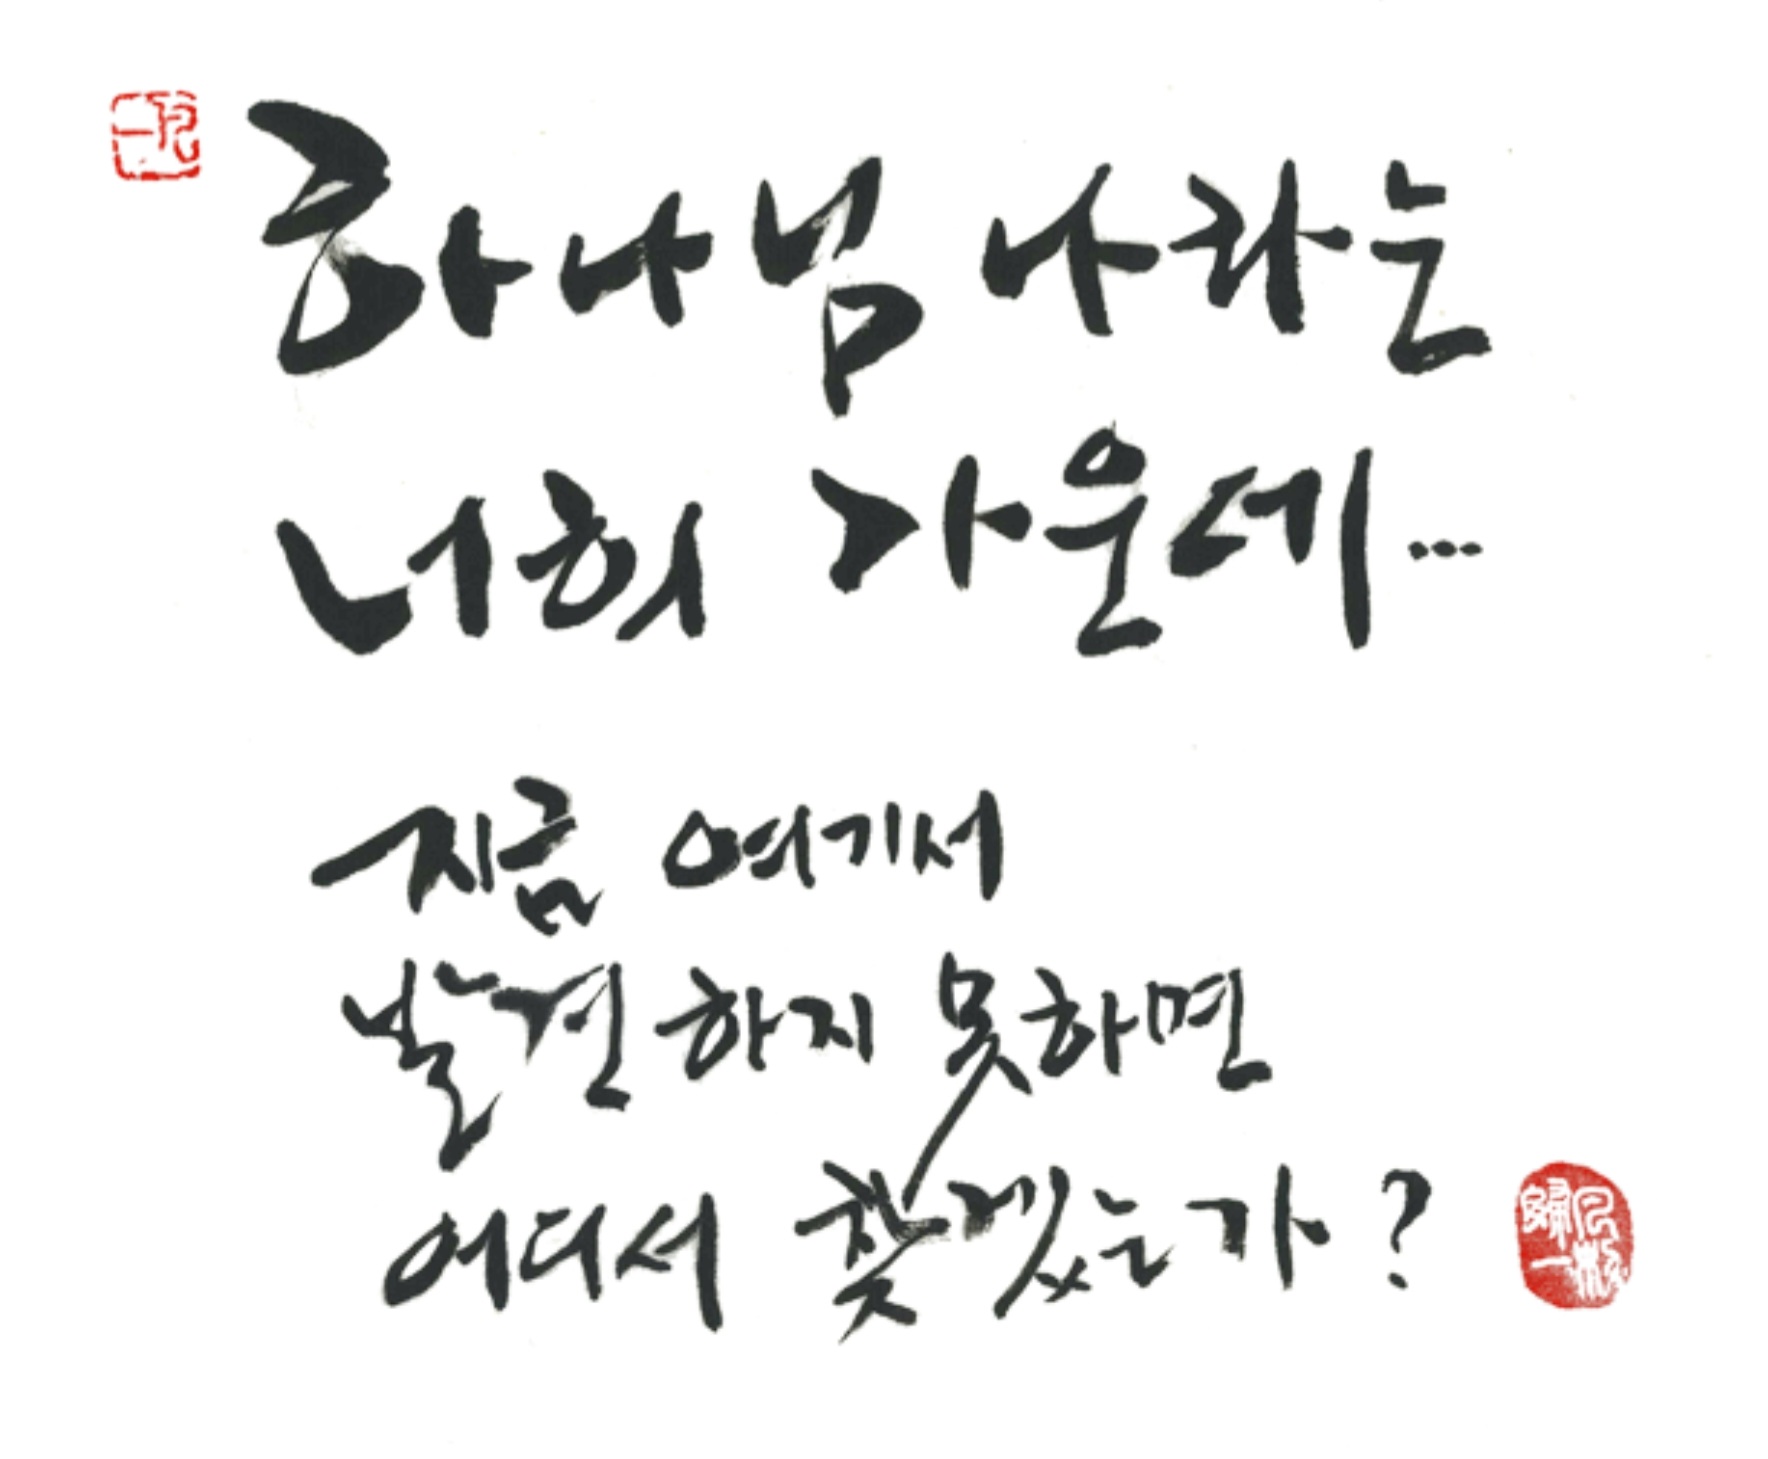 하나님 나라는
너희 가운데...
지금 여기서
발견하지 못하면
어디서 찾겠는가?